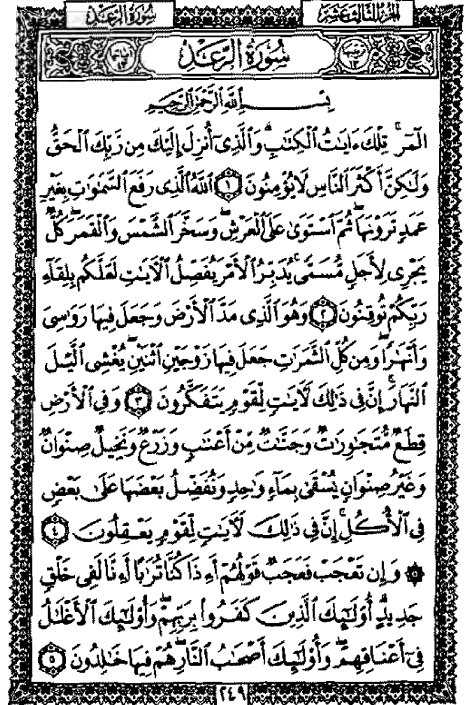 الجزء الثالث عشر
سورة الرعد
سُورَةُ الرَّعْدِ
بِسْمِ اللَّهِ الرَّحْمَٰنِ الرَّحِيمِ
الٓمٓر ۚ تِلْكَ ءَايَٰتُ ٱلْكِتَٰبِ ۗ وَٱلَّذِىٓ أُنزِلَ إِلَيْكَ مِن رَّبِّكَ ٱلْحَقُّ
وَلَٰكِنَّ أَكْثَرَ ٱلنَّاسِ لَا يُؤْمِنُونَ ١ ٱللَّهُ ٱلَّذِى رَفَعَ ٱلسَّمَٰوَٰتِ بِغَيْرِ
عَمَدٍ تَرَوْنَهَا ۖ ثُمَّ ٱسْتَوَىٰ عَلَى ٱلْعَرْشِ ۖ وَسَخَّرَ ٱلشَّمْسَ وَٱلْقَمَرَ ۖ كُلٌّ
يَجْرِى لِأَجَلٍ مُّسَمًّى ۚ يُدَبِّرُ ٱلْأَمْرَ يُفَصِّلُ ٱلْءَايَٰتِ لَعَلَّكُم بِلِقَآءِ
رَبِّكُمْ تُوقِنُونَ ٢ وَهُوَ ٱلَّذِى مَدَّ ٱلْأَرْضَ وَجَعَلَ فِيهَا رَوَٰسِىَ
وَأَنْهَٰرًا ۖ وَمِن كُلِّ ٱلثَّمَرَٰتِ جَعَلَ فِيهَا زَوْجَيْنِ ٱثْنَيْنِ ۖ يُغْشِى ٱلَّيْلَ
ٱلنَّهَارَ ۚ إِنَّ فِى ذَٰلِكَ لَءَايَٰتٍ لِّقَوْمٍ يَتَفَكَّرُونَ ٣ وَفِى ٱلْأَرْضِ
قِطَعٌ مُّتَجَٰوِرَٰتٌ وَجَنَّٰتٌ مِّنْ أَعْنَٰبٍ وَزَرْعٌ وَنَخِيلٌ صِنْوَانٌ
وَغَيْرُ صِنْوَانٍ يُسْقَىٰ بِمَآءٍ وَٰحِدٍ وَنُفَضِّلُ بَعْضَهَا عَلَىٰ بَعْضٍ
فِى ٱلْأُكُلِ ۚ إِنَّ فِى ذَٰلِكَ لَءَايَٰتٍ لِّقَوْمٍ يَعْقِلُونَ ٤
۞ وَإِن تَعْجَبْ فَعَجَبٌ قَوْلُهُمْ أَءِذَا كُنَّا تُرَٰبًا أَءِنَّا لَفِى خَلْقٍ
جَدِيدٍ ۗ أُو۟لَٰٓئِكَ ٱلَّذِينَ كَفَرُوا۟ بِرَبِّهِمْ ۖ وَأُو۟لَٰٓئِكَ ٱلْأَغْلَٰلُ
فِىٓ أَعْنَاقِهِمْ ۖ وَأُو۟لَٰٓئِكَ أَصْحَٰبُ ٱلنَّارِ ۖ هُمْ فِيهَا خَٰلِدُونَ ٥
٢٤٩